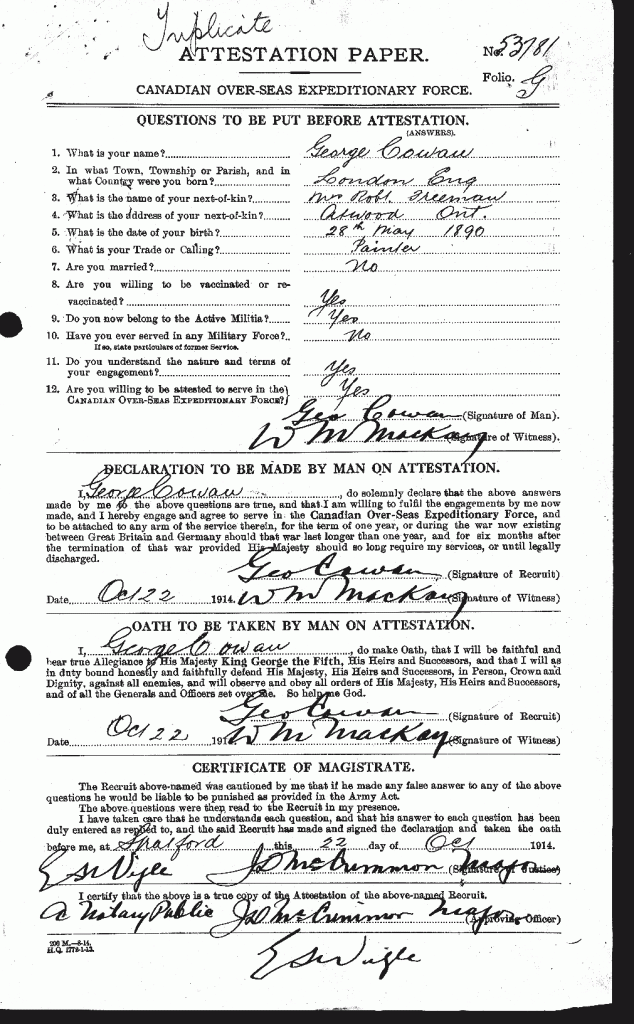 Triplicate
ATTESTATION PAPER.
No. 53781
Folio. G
CANADIAN OVER-SEAS EXPEDITIONARY FORCE.
QUESTIONS TO BE PUT BEFORE ATTESTATION.
(ANSWERS).
1. What is your name? George Cowan
2. In what Town, Township or Parish, and in
what Country were you born? London Eng
3. What is the name of your next-of-kin? Mrs Robt. Freeman
4. What is the address of your next-of-kin? Atwood Ont.
5. What is the date of your birth? 28th May 1890
6. What is your Trade or Calling? Painter
7. Are you married? No
8. Are you willing to be vaccinated or re-
vaccinated? Yes
9. Do you now belong to the Active Militia? Yes
10. Have you ever served in any Military Force? No
If so, state particulars of former Service.
11. Do you understand the nature and terms of
your engagement? Yes
12. Are you willing to be attested to serve in the
CANADIAN OVER-SEAS EXPEDITIONARY FORCE? Yes
Geo Cowan (Signature of Man).
W M Mackay (Signature of Witness).
DECLARATION TO BE MADE BY MAN ON ATTESTATION.
I, George Cowan, do solemnly declare that the above answers
made by me to the above questions are true, and that I am willing to fulfil the engagements by me now
made, and I hereby engage and agree to serve in the Canadian Over-Seas Expeditionary Force, and
to be attached to any arm of the service therein, for the term of one year, or during the war now existing
between Great Britain and Germany should that war last longer than one year, and for six months after
the termination of that war provided His Majesty should so long require my services, or until legally
discharged.
Geo Cowan (Signature of Recruit)
Date Oct 22 1914. W M Mackay (Signature of Witness)
OATH TO BE TAKEN BY MAN ON ATTESTATION.
I, George Cowan, do make Oath, that I will be faithful and
bear true Allegiance to His Majesty King George the Fifth, His Heirs and Successors, and that I will as
in duty bound honestly and faithfully defend His Majesty, His Heirs and Successors, in Person, Crown and
Dignity, against all enemies, and will observe and obey all orders of His Majesty, His Heirs and Successors,
and of all the Generals and Officers set over me. So help me God.
Geo Cowan (Signature of Recruit)
Date Oct 22 1914 W M Mackay (Signature of Witness)
CERTIFICATE OF MAGISTRATE.
The Recruit above-named was cautioned by me that if he made any false answer to any of the above
questions he would be liable to be punished as provided in the Army Act.
The above questions were then read to the Recruit in my presence.
I have taken care that he understands each question, and that his answer to each question has been
duly entered as replied to, and the said Recruit has made and signed the declaration and taken the oath
before me, at Stratford this 22 day of Oct 1914.
JD McCrimmon Major (Signature of Justice)
I certify that the above is a true copy of the Attestation of the above-named Recruit.
A Notary Public JD McCrimmon Major (Approving Officer)
200 M.—8-14.
H.Q. 1772-1-13.